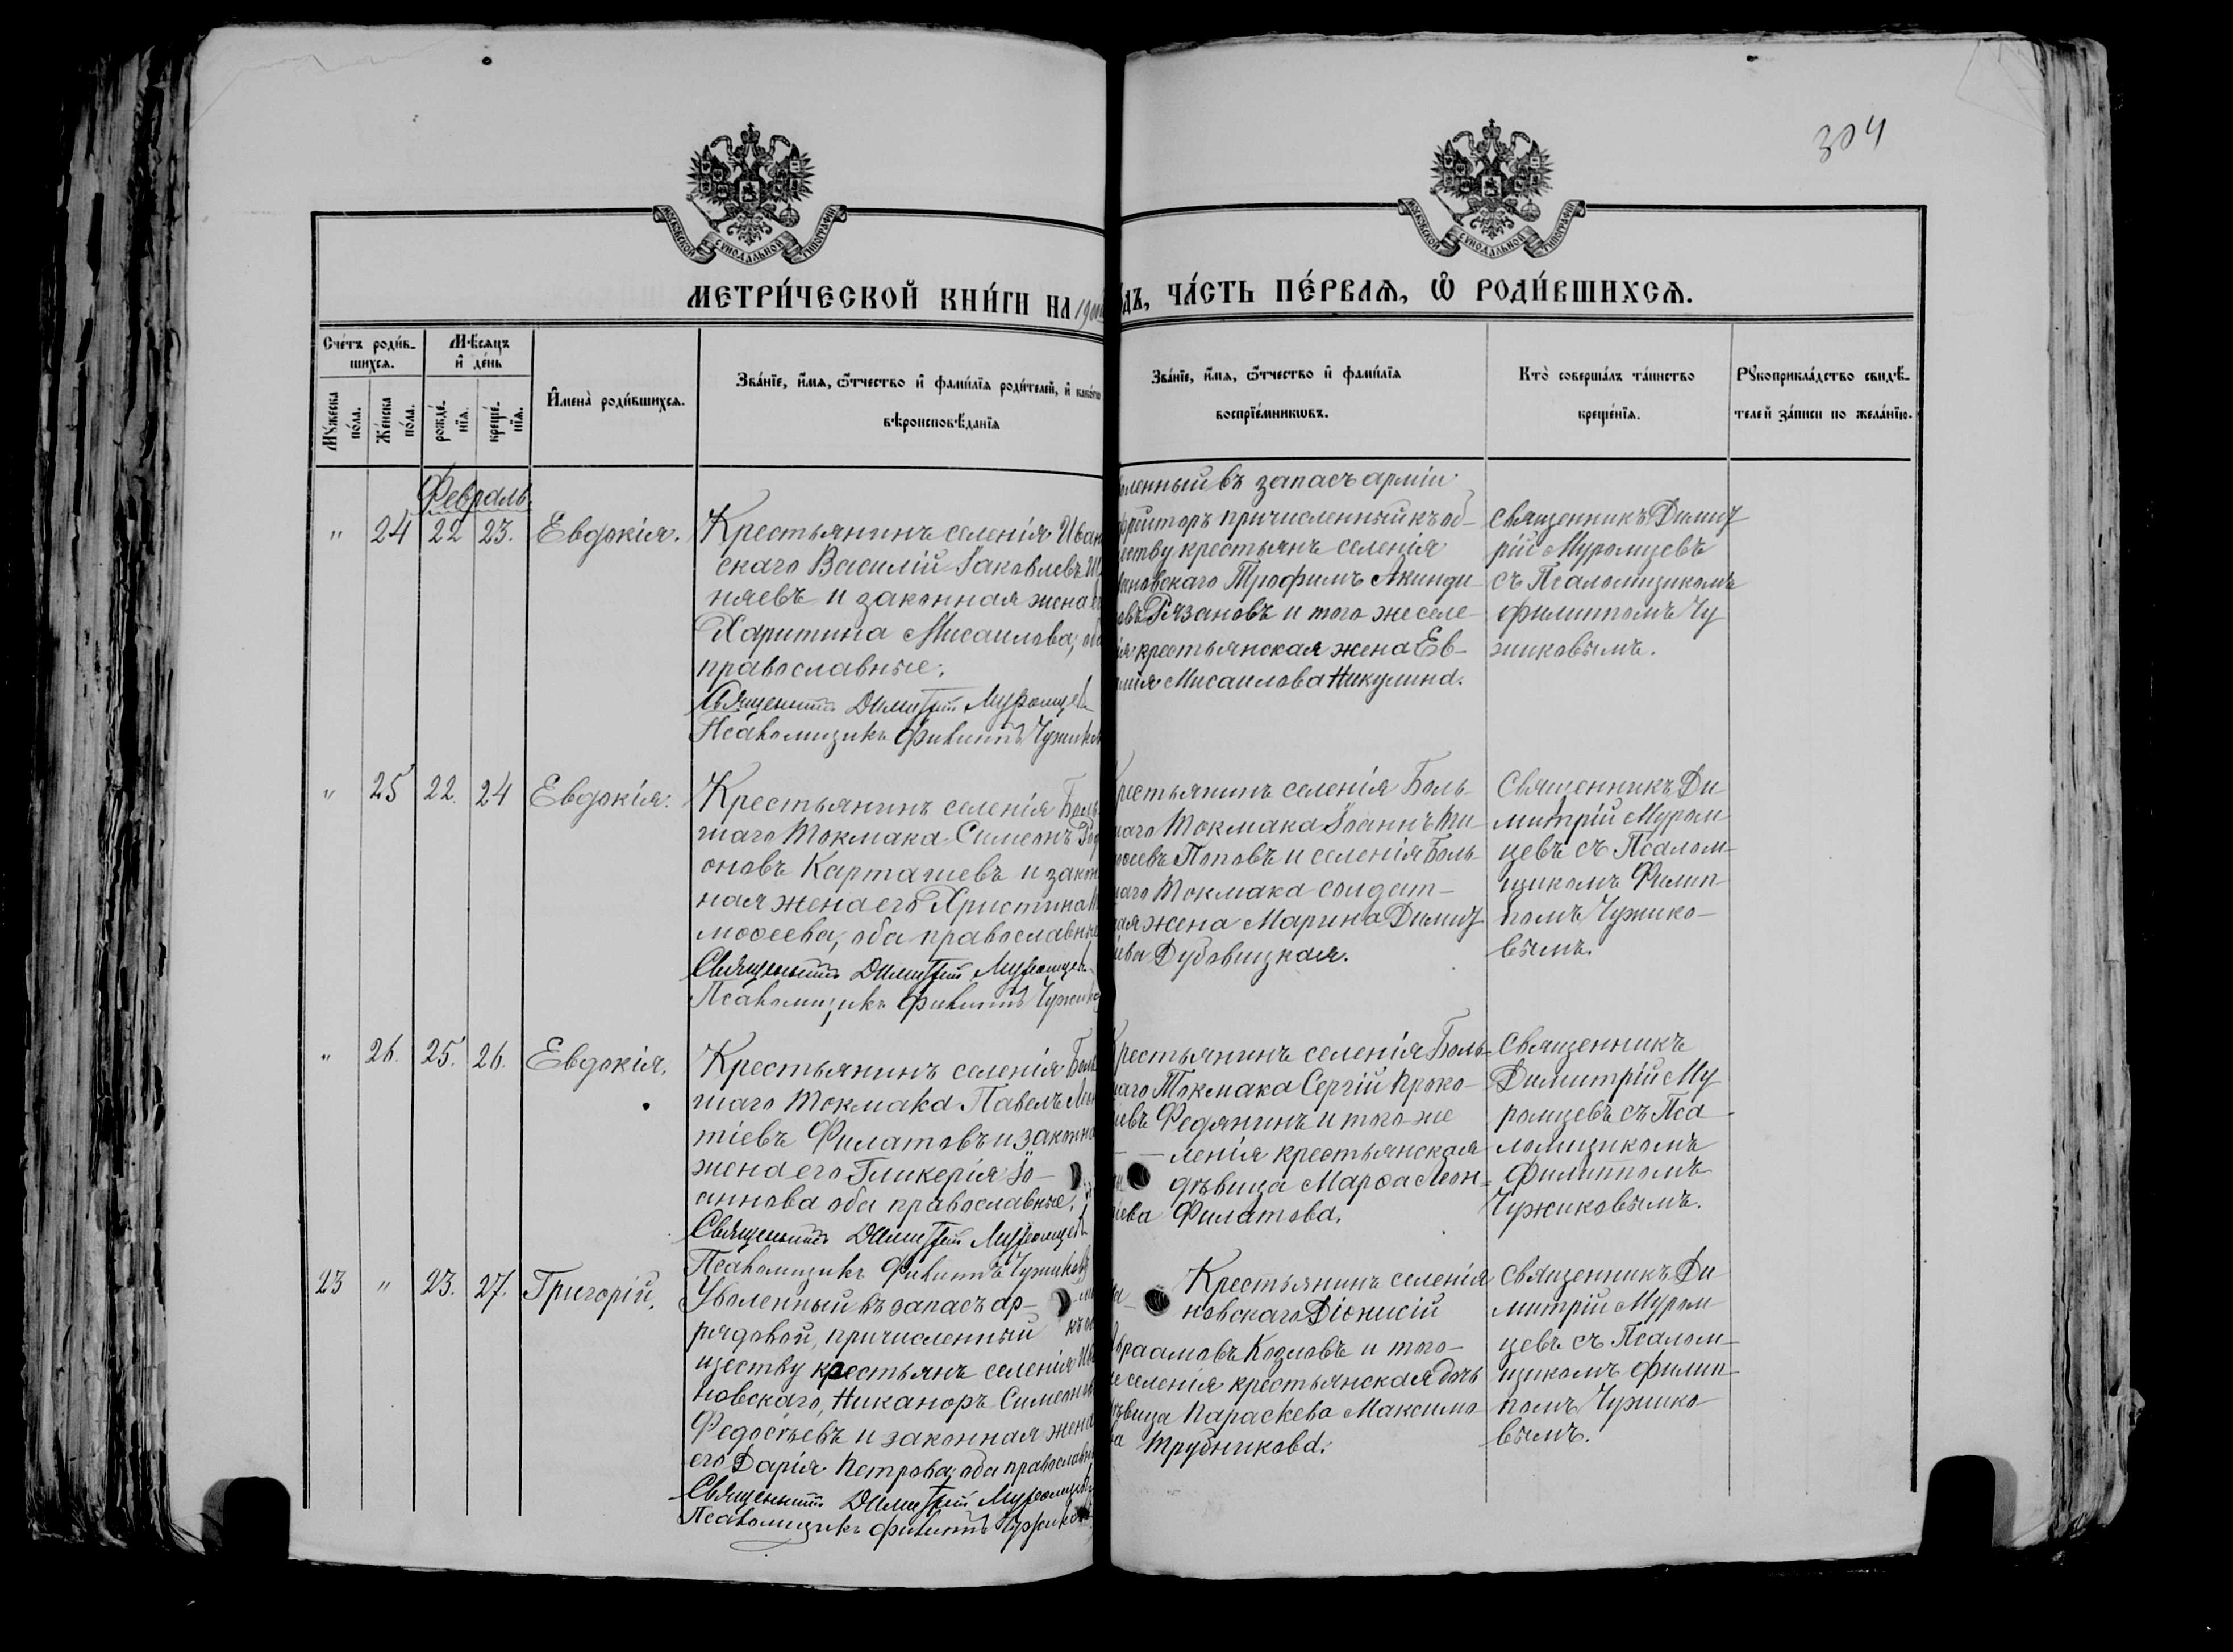 304
МОСКОВСКОЙ СѴНОДАЛЬНОЙ ТИПОГРАФІИ
МОСКОВСКОЙ СѴНОДАЛЬНОЙ ТИПОГРАФІИ
МЕТРИ́ЧЕСКОЙ КНИ́ГИ НА 1900
ДЪ, ЧА́СТЬ ПЕ́РВАѦ, Ѡ҆ РОДИ́ВШИХСѦ.
Сче́тъ роди́в-
шихсѧ.
Мꙋ́жеска
по́ла.
Же́нска
по́ла.
Мѣ́сѧцъ
и҆ де́нь
рожде́-
нїѧ.
креще́-
нїѧ.
И҆мена̀ роди́вшихсѧ.
Зва́нїе, и҆́мѧ, ѻ҆́тчество и҆ фами́лїѧ роди́телей, и҆
вѣроисповѣ́данїѧ
Зва́нїе, и҆́мѧ, ѻ҆́тчество и҆ фами́лїѧ
воспрїе́мникѡвъ.
Кто̀ соверша́лъ та́инство
креще́нїѧ.
Рꙋкоприкла́дство свидѣ́-
телей за́писи по жела́нїю.
Февраль.
" 24 22 23. Евдокія.
Крестьянинъ селенія Иван
скаго Василій Іаковлевъ
няевъ и законная жена
Харитина Мисаилова, об
православные.
Священникъ Димитрій Муромцев
Псаломщикъ Филиппъ Чужиков
ленный въ запасъ арміи
фрейторъ причисленный къ об-
еству крестьянъ селенія
ановскаго Трофимъ Акинди-
овъ Рязановъ и того же селе-
ія крестьянская жена Ев-
Мисаилова Никулина.
Священникъ Димит
рій Муромцевъ
съ Псаломщикомъ
Филиппомъ Чу
жиковымъ.
" 25 22. 24 Евдокія.
Крестьянинъ селенія Боль
шаго Токмака Симеонъ Род
оновъ Карташевъ и закон
ная жена его Христина
моѳеева, оба православные
Священникъ Димитрій Муромцев
Псаломщикъ Филиппъ Чужико
рестьянинъ селенія Боль-
шаго Токмака Іоаннъ Ти-
моѳеевъ Поповъ и селенія Боль-
шаго Токмака солдат-
ая жена Марина Димит
іева Дубовицкая.
Священникъ Ди
митрій Муром
цевъ съ Псалом-
щикомъ Филип-
помъ Чужико-
вымъ.
" 26. 25. 26. Евдокія.
Крестьянинъ селенія Боль
шаго Токмака Павелъ Леон
тіевъ Филатовъ и законна
жена его Гликерія Іо-
аннова оба православные.
Священникъ Димитрій Муромцев
Псаломщикъ Филиппъ Чужиковъ
рестьянинъ селенія Боль-
шаго Токмака Сергій Проко-
іевъ Федянинъ и того же
ленія крестьянская
дѣвица Марѳа Леон-
іева Филатова.
Священникъ
Димитрій Му
ромцевъ съ Пса
ломщикомъ
Филиппомъ
Чужиковымъ.
23 " 23. 27. Григорій.
Уволенный въ запасъ ар-
рядовой, причисленный къ об
ществу крестьянъ селенія Ива
новскаго, Никаноръ Симеонов
Федосѣевъ и законная жена
его Дарія Петрова, оба православны
Священникъ Димитрій Муромцев
Псаломщикъ Филиппъ Чужиков
Крестьянинъ селенія
новскаго Діонисій
враамовъ Козловъ и того-
е селенія крестьянская дочь
ѣвица Параскева Максимо
ва Трубникова.
Священникъ Ди
митрій Муром
цевъ съ Псалом-
щикомъ Филип-
помъ Чужико-
вымъ.